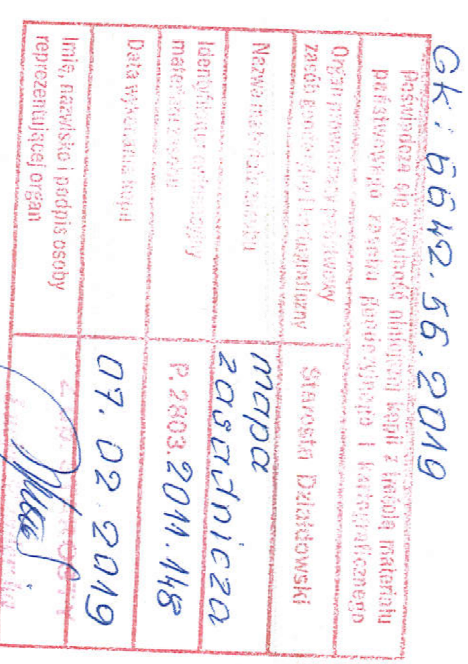 GK: 6642.56.2019
poświadcza się zgodność niniejszej kopii z treścią materiału
państwowego zasobu geodezyjnego i kartograficznego
Organ prowadzący państwowy
zasób geodezyjny i kartograficzny
Starosta Działdowski
Nazwa materiału zasobu
mapa
zasadnicza
Identyfikator ewidencyjny
materiału zasobu
P.2803.2011.148
Data wykonania kopii
07.02.2019
Imię, nazwisko i podpis osoby
reprezentującej organ